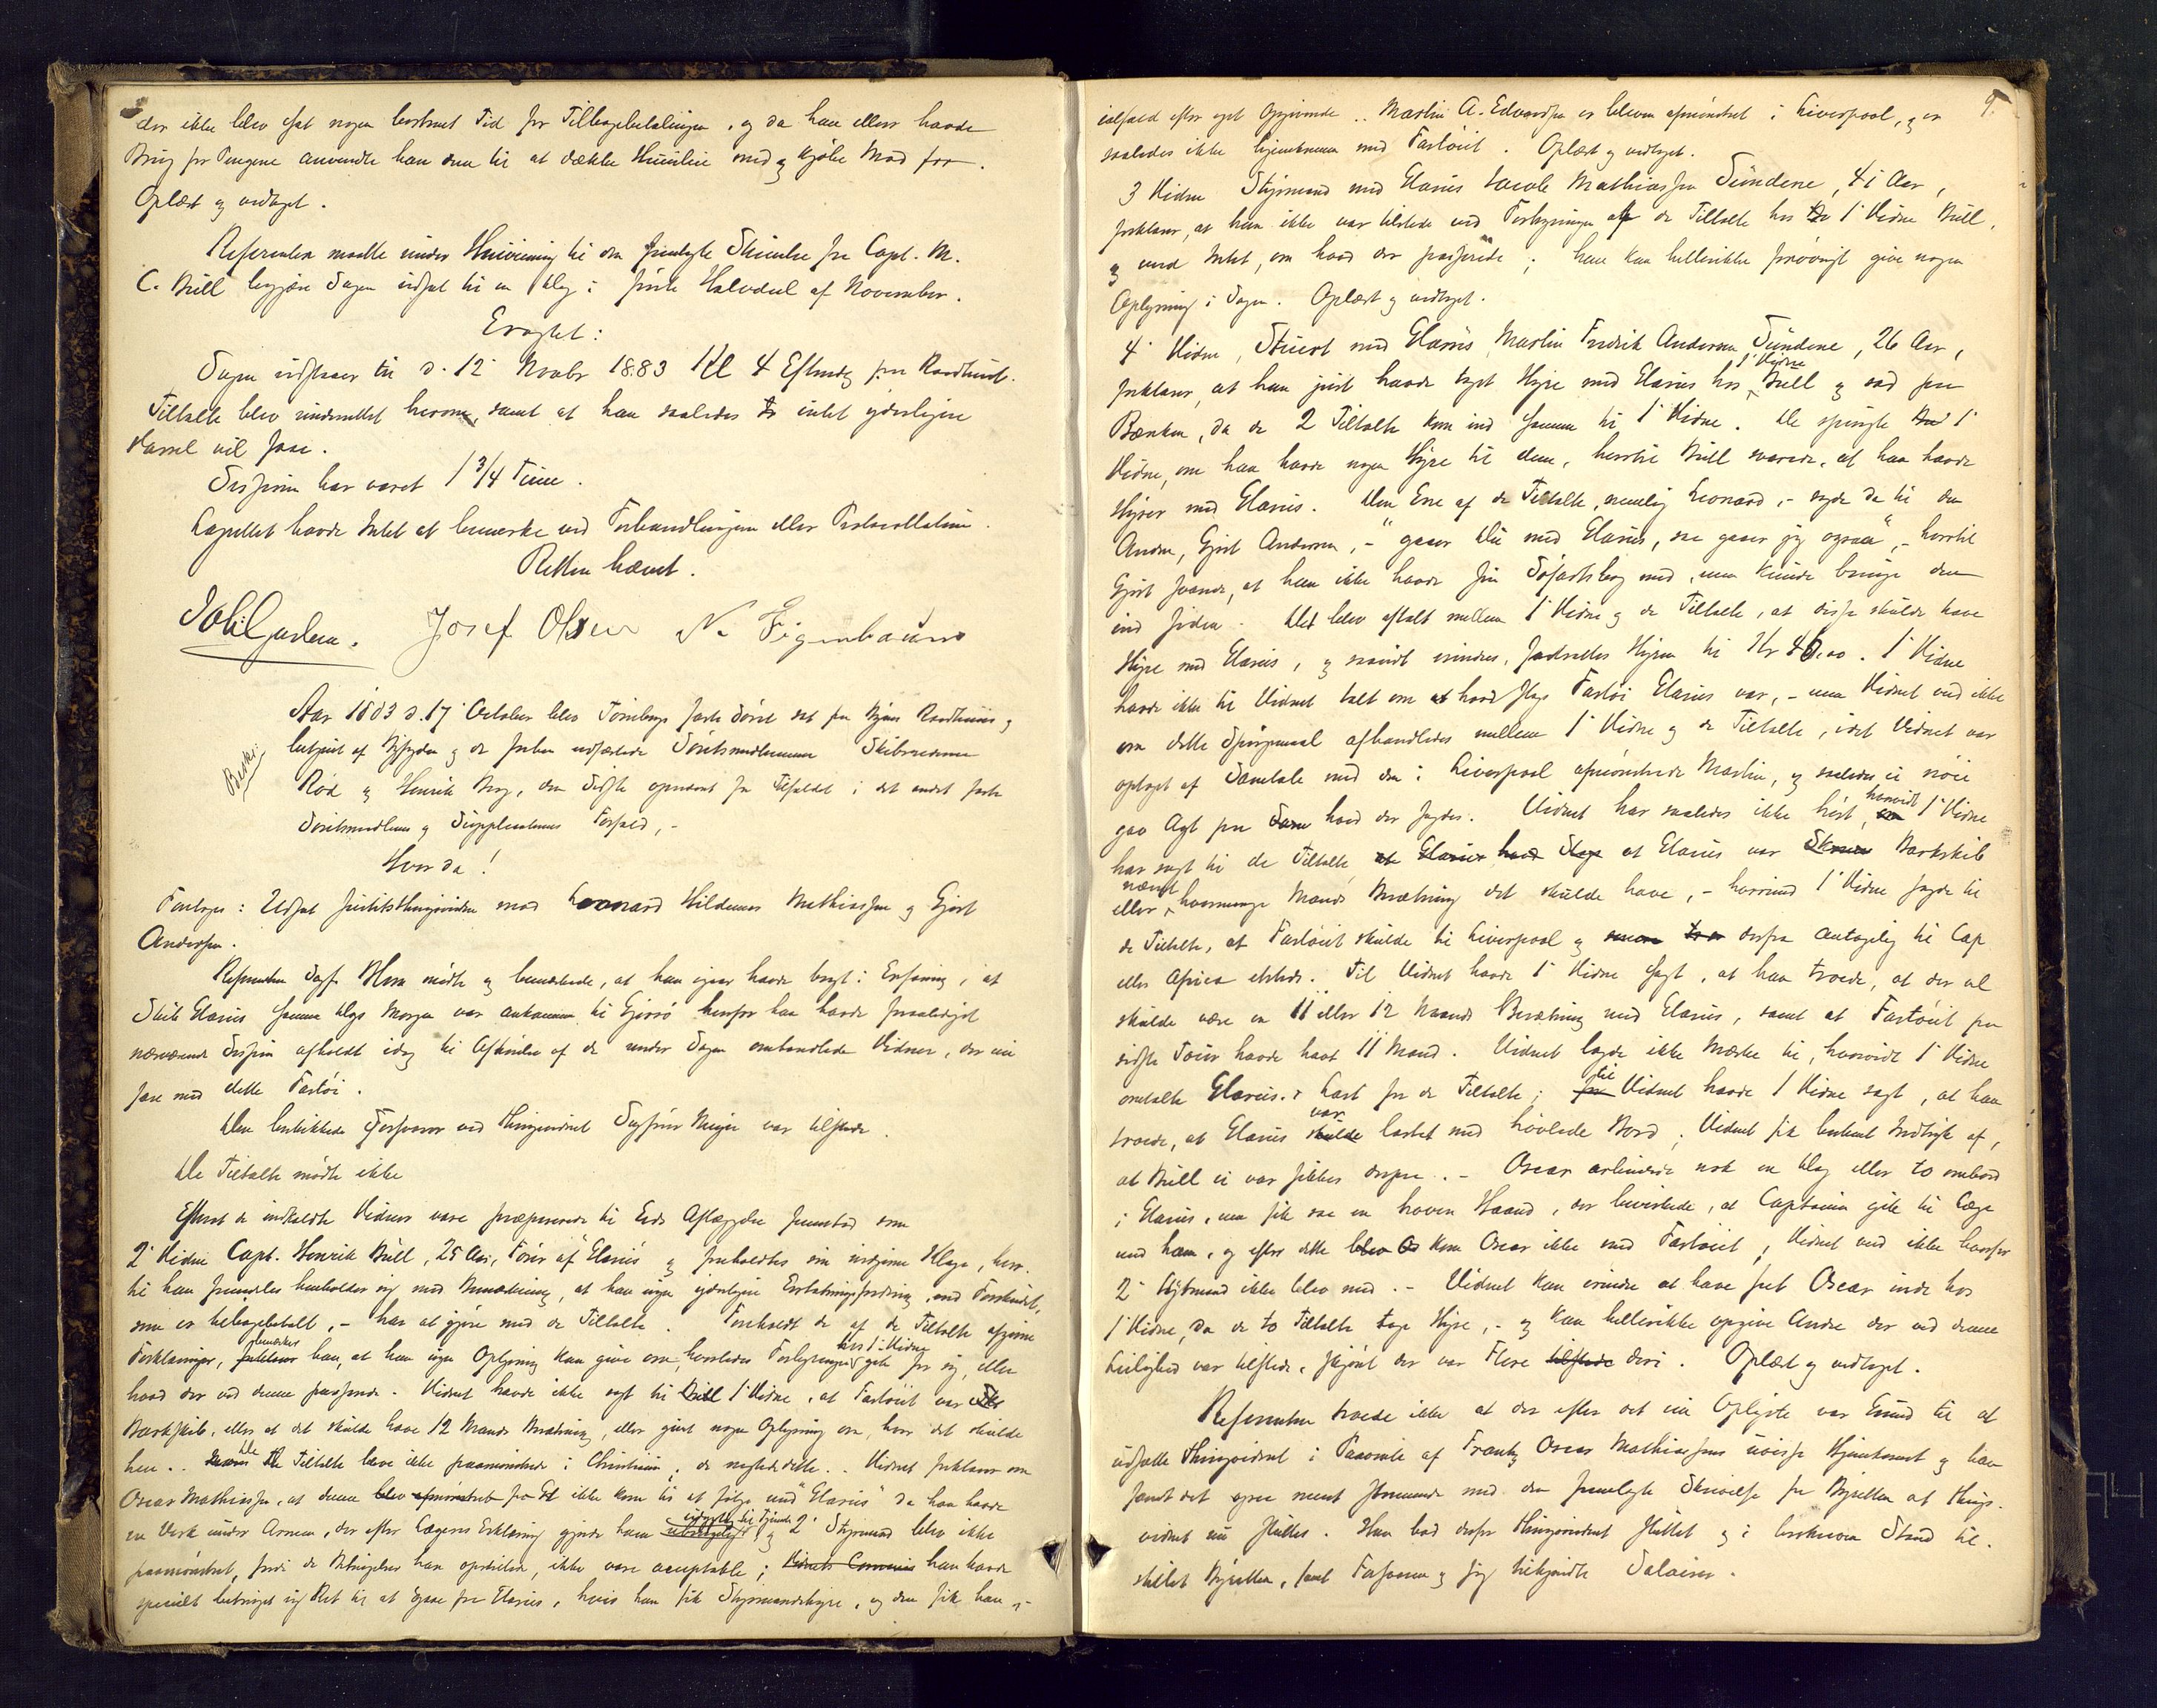 der ikke blev sat nogen bestemt Tid for Tilbagebetalingen, og da han ellers havde
Brug for Pengene anvendte han dem til at dække Huusleie med og kjøbe Mad for.
Oplæst og vedtaget.
Referenten maatte under Henviisning til den fremlagte Skrivelse fra Capt. M.
C. Bull begjære Sagen udsat til en Dag i første Halvdeel af November.
Eragtet:
Sagen udstaaer til d. 12 Novbr 1883 Kl 4 Eftmdg paa Raadhuset.
Tiltalte blev underrettet herom, samt at han saaledes intet yderligere
Varsel vil faae.
Sessionen har varet 1 3/4 Time.
Lagrettet havde Intet at bemærke ved Forhandlingen eller Protocollationen.
Retten hævet.
Josef Olsen N. Figenbaum
Aar 1883 d. 17 October blev Tønsbergs faste Søret sat paa Byens Raadhuus og
betjent af Byfogden og de forhen udfærdede Søretsmedlemmer Skibsrederne
Rød og Henrik Bog, den Sidste opnævnt for Tilfældet i det andet faste
Søretsmedlems og Suppleanternes Forfald, -
Beskr:
Hvorda!
Foretoges: Udsat Justitsthingsvidne mod Leonard Hildemar Mathiassen og Gjert
Andersen.
Referenten Sagf. Horn mødte og bemærkede, at han igaar havde bragt i Erfaring, at
Skib Glarus samme Dags Morgen var ankommen til Gjersø hvorfor han havde foranlediget
nærværende Session afholdt idag til Afhørelse af de under Sagen omhandlede Vidner, der nu
fare med dette Fartøi.
Den beskikkede Forsvarer ved Thingsvidnet Sagfører Meyer var tilstede.
De Tiltalte mødte ikke
Efterat de indkaldte Vidner vare præparerede til Eds Aflæggelse fremstod som
2' Vidne Capt. Henrik Bull, 25 Aar, Fører af "Glarus" og foreholdtes sin indgivne Klage, hvor-
til han fremdeles henholder sig med Bemærkning, at han ingen yderligere Erstatningsfordring, end Forskudet,
som er tilbagebetalt, - har at gjøre mod de Tiltalte. Foreholdt de af de Tiltalte afgivne
Forklaringer, bemærker han, at han ingen Oplysning kan give om, hvorledes Forhyringen hos 1' Vidne gik for sig, eller
hvad der ved denne passerede. Vidnet havde ikke sagt til Bull 1' Vidne, at Fartøiet var
Barkskib, eller at det skulde have 12 Mands Besætning, eller givet nogen Oplysning om, hvor det skulde
hen.. De Tiltalte bleve ikke paamønstrede i Christiania, de negtede dette.. Vidnet forklarer om
Oscar Mathiassen, at denne blev afmønstret for ikke kom til at følge med "Glarus" da han havde
en Værk under Armen, der efter Lægens Erklæring gjorde ham udygtig til Tjeneste, og 2' Styrmand blev ikke
paamønstret, fordi de Betingelser han opstillede, ikke vare acceptable; Vidnets Commis han havde
specielt betinget sig Ret til at gaae fra Glarus, hvis han fik Styrmandshyre, og den fik han,-
9.
ialfald efter eget Opgivende.. Martin A. Edvardsen er bleven afmønstret i Liverpool, og er
saaledes ikke hjemkommen med Fartøiet. Oplæst og vedtaget.
3 Vidne Styrmand med Glarus Jacob Mathiassen Sundene, 41 Aar,
forklarer, at han ikke var tilstede ved Forhyringen af de Tiltalte hos 1' Vidne Bull,
og veed Intet, om hvad der passerede; han kan hellerikke forøvrigt give nogen
Oplysning i Sagen. Oplæst og vedtaget.
4' Vidne, Stuert med Glarus Martin Fredrik Andersen Sundene, 26 Aar,
forklarer, at han just havde taget Hyre med Glarus hos 1' Vidne Bull og sad paa
Bænken, da de 2 Tiltalte kom ind samme til 1' Vidne. De spurgte 1
Vidne, om han havde nogen Hyre til dem, hvortil Bull svarede, at han havde
Hyrer med Glarus. Den Ene af de Tiltalte, nemlig Leonard,- sagde da til den
Anden, Gjert Andersen, - "gaaer Du med Glarus, saa gaaer jeg ogsaa", - hvortil
Gjert svarede, at han ikke havde sin Søfartsbog med, men kunde bringe den
ind siden. Det blev aftalt mellem 1' Vidne og de Tiltalte, at disse skulde have
Hyre med Glarus, og saavidt erindres, fastsattes Hyren til Kr 40.00. 1' Vidne
havde ikke til Vidnet talt om at hvad Slags Fartøi Glarus var, - men Vidnet veed ikke
om dette Spørgsmaal afhandledes mellem 1' Vidne og de Tiltalte, idet Vidnet var
optaget af Samtale med den i Liverpool afmønstrede Martin, og saaledes ei nøie
gav Agt paa hvad der sagdes. Vidnet har saaledes ikke hørt, hvorvidt 1' Vidne
har sagt til de Tiltalte at Glarus hvad Slags at Glarus var Barkskib
eller nævnt, hvormange Mands Besætning det skulde have, - hvorimod 1' Vidne sagde til
de Tiltalte, at Fartøiet skulde til Liverpool og derfra antagelig til Cap
eller Africa etsteds. Til Vidnet havde 1' Vidne sagt, at han troede, at der vel
skulde være en 11 eller 12 Mands Besætning med Glarus, samt at Fartøiet paa
sidste Tour havde havt 11 Mand. Vidnet lagde ikke Mærke til, hvorvidt 1' Vidne
omtalte Glarus's Last for de Tiltalte; til Vidnet havde 1 Vidne sagt, at han
troede, at Glarus var lastet med høvlede Bord; Vidnet fik bestemt Indtryk af,
at Bull ei var sikker derpaa.. - Oscar arbeidede nok en Dag eller to ombord
i Glarus, men fik saa en hoven Haand, der bevirkede, at Captainen gik til Læge
med ham, og efter dette kom Oscar ikke med Fartøiet; Vidnet veed ikke hvorfor
2' Styrmand ikke blev med. - Vidnet kan erindre at have seet Oscar inde hos
1' Vidne, da de to Tiltalte tog Hyre, - og kan hellerikke opgive Andre der ved denne
Leilighed var tilstede, skjønt der var Flere tilstede deri. Oplæst og vedtaget.
Referenten troede ikke at der efter det nu Oplyste var Grund til at
udsætte Thingsvidnet i Paavente af Frantz Oscar Mathiassens uvisse Hjemkomst og han
fandt det ogsaa meest stemmende med den fremlagte Skrivelse fra Byretten at Things-
vidnet nu sluttes. Han bad derfor Thingsvidnet sluttet og i beskreven Stand til-
stillet Byretten, samt Forsvareren og sig tilkjendte Salairer.